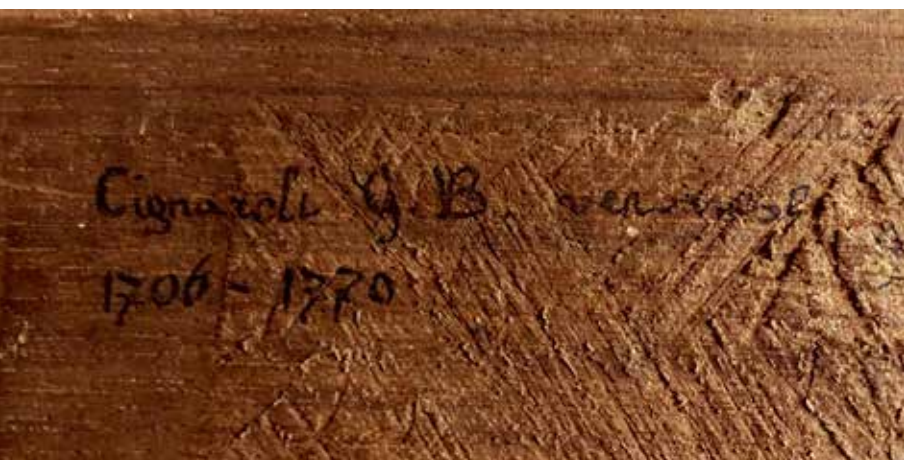 Cignaroli G. B. veronese
1706 - 1770